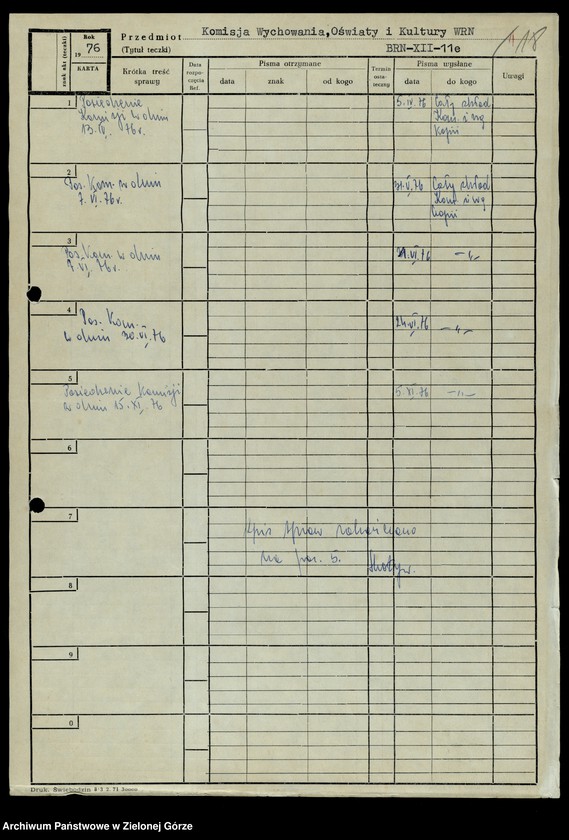 znak akt (teczki)
Rok
19 76
KARTA
Przedmiot Komisja Wychowania,Oświaty i Kultury WRN
(Tytuł teczki) BRN-XII-11e
118
Krótka treść sprawy
Data rozpoczęcia Ref.
Pisma otrzymane
data
znak
od kogo
Termin ostateczny
Pisma wysłane
data
do kogo
Uwagi
1
Posiedzenie
Komisji w dniu
13.IV. 76r.
5.IV.76
Cały skład
Kom.
kopii
2
Pos. Kom. w dniu
7.VI.76r.
31.V.76
Cały skład
Kom.
kopii
3
Pos. Kom w dniu
VI. 76r.
21.VI.76
-"-
4
Pos. Kom.
w dniu 30.VI.76
24.VI.76
-"-
5
Posiedzenie Komisji
w dniu 15.XI.76
76
-"-
6
7
Spis spraw zakończono
na poz. 5.
8
9
0
Druk. Świebodzin
Archiwum Państwowe w Zielonej Górze